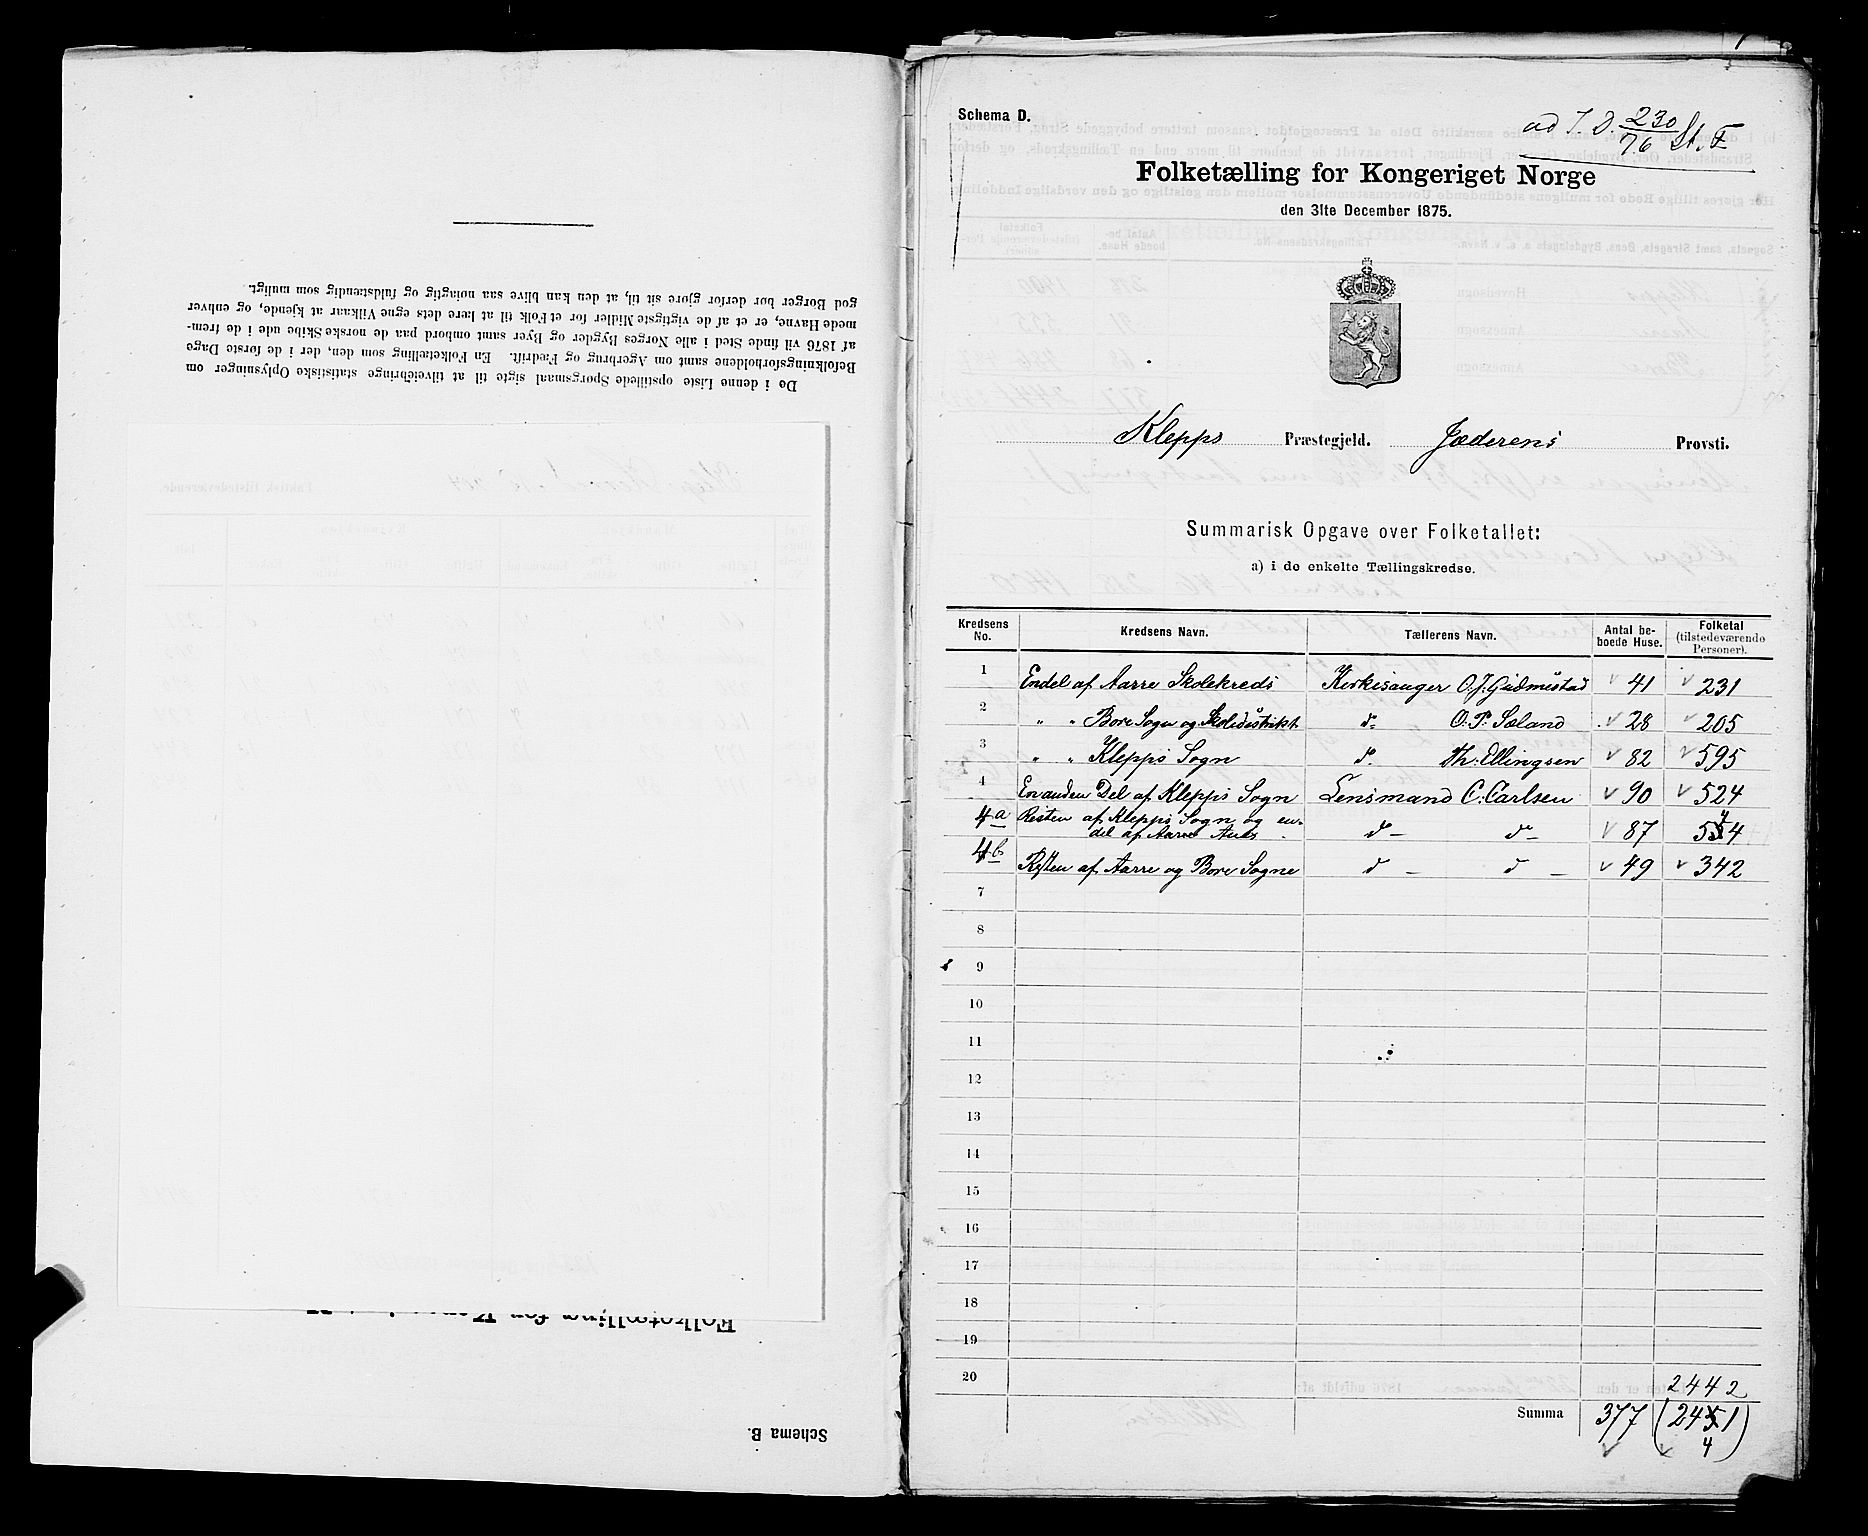 De i denne Liste opstillede Spørgsmaal sigte til at tilveiebringe statistiske Oplysninger om
Befolkningsforholdene samt om Agerbrug og Fædrift. En Folketælling som den, der i de første Dage
af 1876 vil finde Sted i alle Norges Bygder og Byer samt ombord paa de norske Skibe ude i de frem-
mede Havne, er et af de vigtigste Midler for et Folk til at lære dets egne Vilkaar at kjende, og enhver
god Borger bør derfor gjøre sit til, at den kan blive saa nøiagtig og fuldstændig som muligt.
Schema B.
Schema D.
ad J. D. 230/76 St. F
Folketælling for Kongeriget Norge
den 31te December 1875.
Klepps Præstegjeld. Jæderens Provsti.
Summarisk Opgave over Folketallet:
a) i de enkelte Tællingskredse.
Kredsens No. Kredsens Navn. Tællerens Navn. Antal beboede Huse. Folketal (tilstedeværende Personer).
1 Endel af Aarre Skolekreds Kirkesanger O. J. Gudmestad 41 231
2 " " Bore Sogn og Skoledistrikt do O. P. Sæland 28 205
3 " " Klepps Sogn do Th. Ellingsen 82 595
4 En anden Del af Klepps Sogn Lensmand C. Carlsen 90 524
4a Resten af Klepps Sogn og en-
del af Aarre Anex d- d- 87 554
4b Resten af Aarre og Bore Sogne d - d - 49 342
7
8
9
10
11
12
13
14
15
16
17
18
19
20
2442
Summa 377 (2451)
4